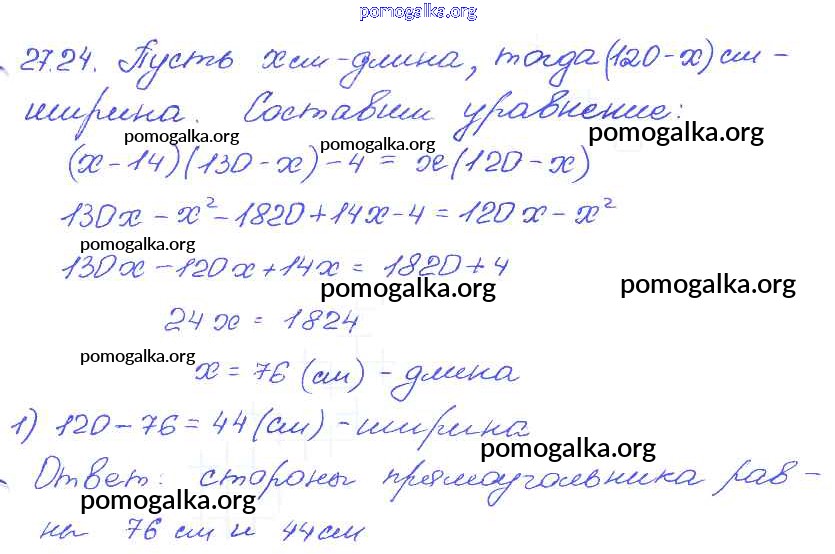 pomogalka.org
27.24. Пусть x см - длина, тогда (120 - x) см -
ширина. Составим уравнение:
pomogalka.org pomogalka.org pomogalka.org
(x - 14)(130 - x) - 4 = x(120 - x)
130x - x² - 1820 + 14x - 4 = 120x - x²
pomogalka.org
130x - 120x + 14x = 1820 + 4
pomogalka.org pomogalka.org
24x = 1824
pomogalka.org
x = 76 (см) - длина
1) 120 - 76 = 44 (см) - ширина
pomogalka.org
Ответ: стороны прямоугольника рав-
pomogalka.org
ны 76 см и 44 см